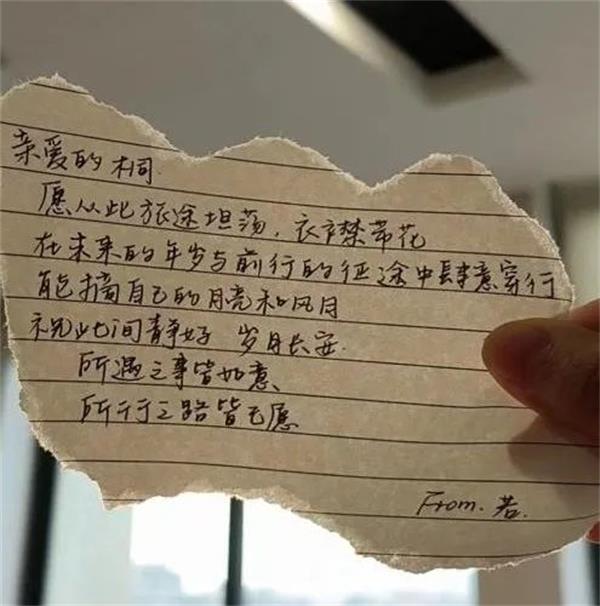 亲爱的桐
愿从此旅途坦荡，衣襟带花
在未来的年岁与前行的征途中肆意穿行
能摘自己的月亮和风月
祝此间静好 岁月长安.
所遇之事皆如意
所行之路皆无愿
From. 若.